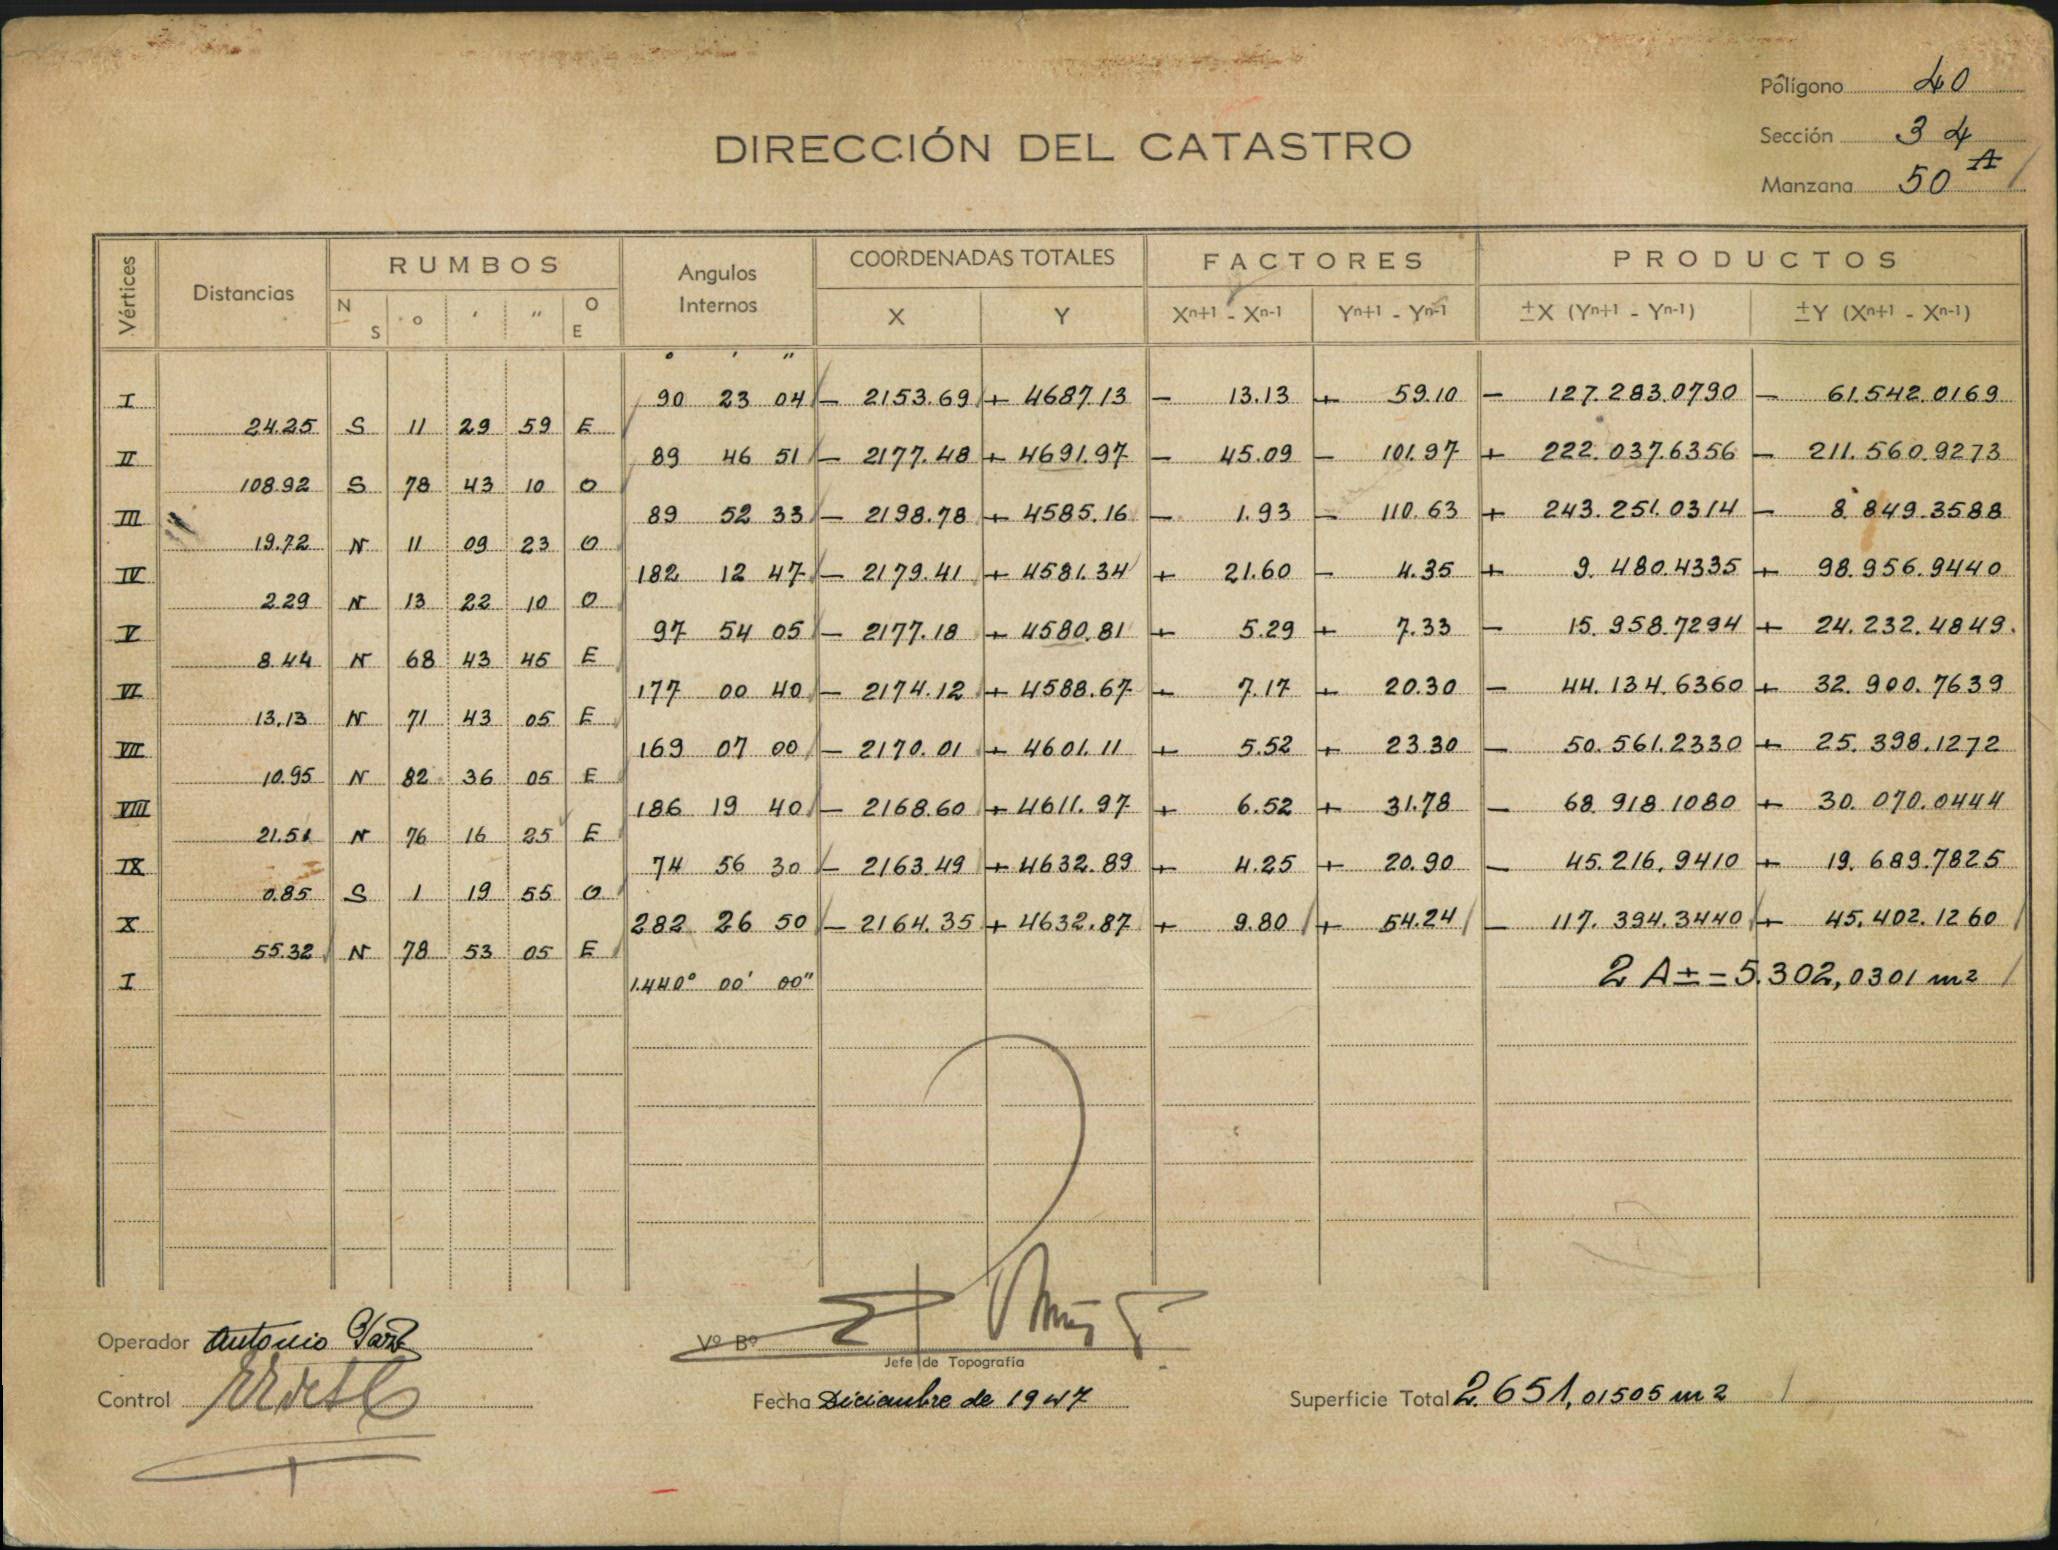 Polígono 40
DIRECCIÓN DEL CATASTRO
Sección 34
Manzana 50 A
Vértices Distancias RUMBOS Angulos Internos COORDENADAS TOTALES FACTORES PRODUCTOS
N S o ' " O E X Y Xn+1 - Xn-1 Yn+1 - Yn-1 ±X (Yn+1 - Yn-1) ±Y (Xn+1 - Xn-1)
° ' "
I 90 23 04 - 2153.69 + 4687.13 - 13.13 + 59.10 - 127.283.0790 - 61.542.0169
24.25 S 11 29 59 E
II 89 46 51 - 2177.48 + 4691.97 - 45.09 - 101.97 + 222.037.6356 - 211.560.9273
108.92 S 78 43 10 O
III 89 52 33 - 2198.78 + 4585.16 - 1.93 - 110.63 + 243.251.0314 - 8.849.3588
19.72 N 11 09 23 O
IV 182 12 47 - 2179.41 + 4581.34 + 21.60 - 4.35 + 9.480.4335 + 98.956.9440
2.29 N 13 22 10 O
V 97 54 05 - 2177.18 + 4580.81 + 5.29 + 7.33 - 15.958.7294 + 24.232.4849.
8.44 N 68 43 45 E
VI 177 00 40 - 2174.12 + 4588.67 + 7.17 + 20.30 - 44.134.6360 + 32.900.7639
13.13 N 71 43 05 E
VII 169 07 00 - 2170.01 + 4601.11 + 5.52 + 23.30 - 50.561.2330 + 25.398.1272
10.95 N 82 36 05 E
VIII 186 19 40 - 2168.60 + 4611.97 + 6.52 + 31.78 - 68.918.1080 + 30.070.0444
21.51 N 76 16 25 E
IX 74 56 30 - 2163.49 + 4632.89 + 4.25 + 20.90 - 45.216.9410 + 19.689.7825
0.85 S 1 19 55 O
X 282 26 50 - 2164.35 + 4632.87 + 9.80 + 54.24 - 117.394.3440 + 45.402.1260
55.32 N 78 53 05 E
I 1.440° 00' 00" 2 A ± = 5.302,0301 m2
Operador Antonio
Vº Bº
Jefe de Topografía
Control
Fecha Diciembre de 1947
Superficie Total 2.651,01505 m2